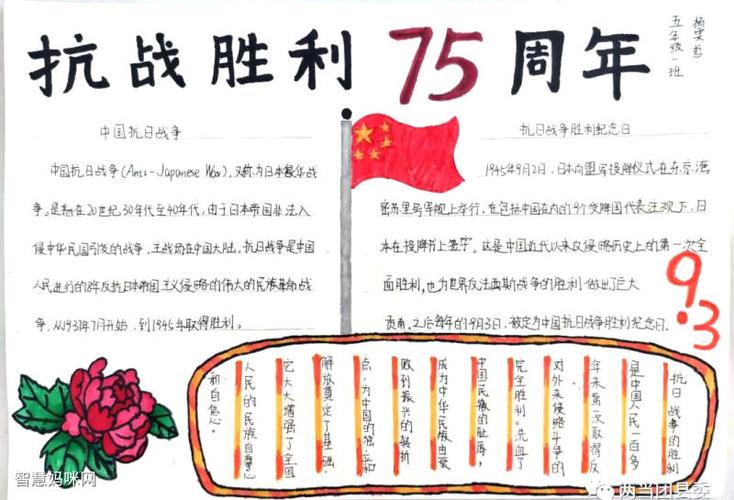 抗战胜利75周年
五年级一班
中国抗日战争
中国抗日战争(Anti-Japanese War),又称为日本侵华战
争。是指在20世纪30年代至40年代,由于日本帝国非法入
侵中华民国引发的战争,主战场在中国大陆。抗日战争是中国
人民进行的8年反抗日本帝国主义侵略的伟大的民族革命战
争,从1937年7月开始,到1945年取得胜利。
抗日战争胜利纪念日
1945年9月2日,日本向盟军投降仪式在东京湾
密苏里号军舰上举行,在包括中国在内的9个受降国代表注视下,日
本在投降书上签字。这是中国近代以来反侵略历史上的第一次全
面胜利,也为世界反法西斯战争的胜利做出了巨大
贡献。之后每年的9月3日,被定为中国抗日战争胜利纪念日.
9.3
抗日战争的胜利
是中国人民一百多
年来第一次取得反
对外来侵略斗争的
完全胜利。洗血了
中国民族的耻辱,
成为中华民族由衰
败到振兴的转折
点,为中国的独立和
解放奠定了基础,
它大大增强了全国
人民的民族自尊心
和自信心。
智慧妈咪网
两当团县委